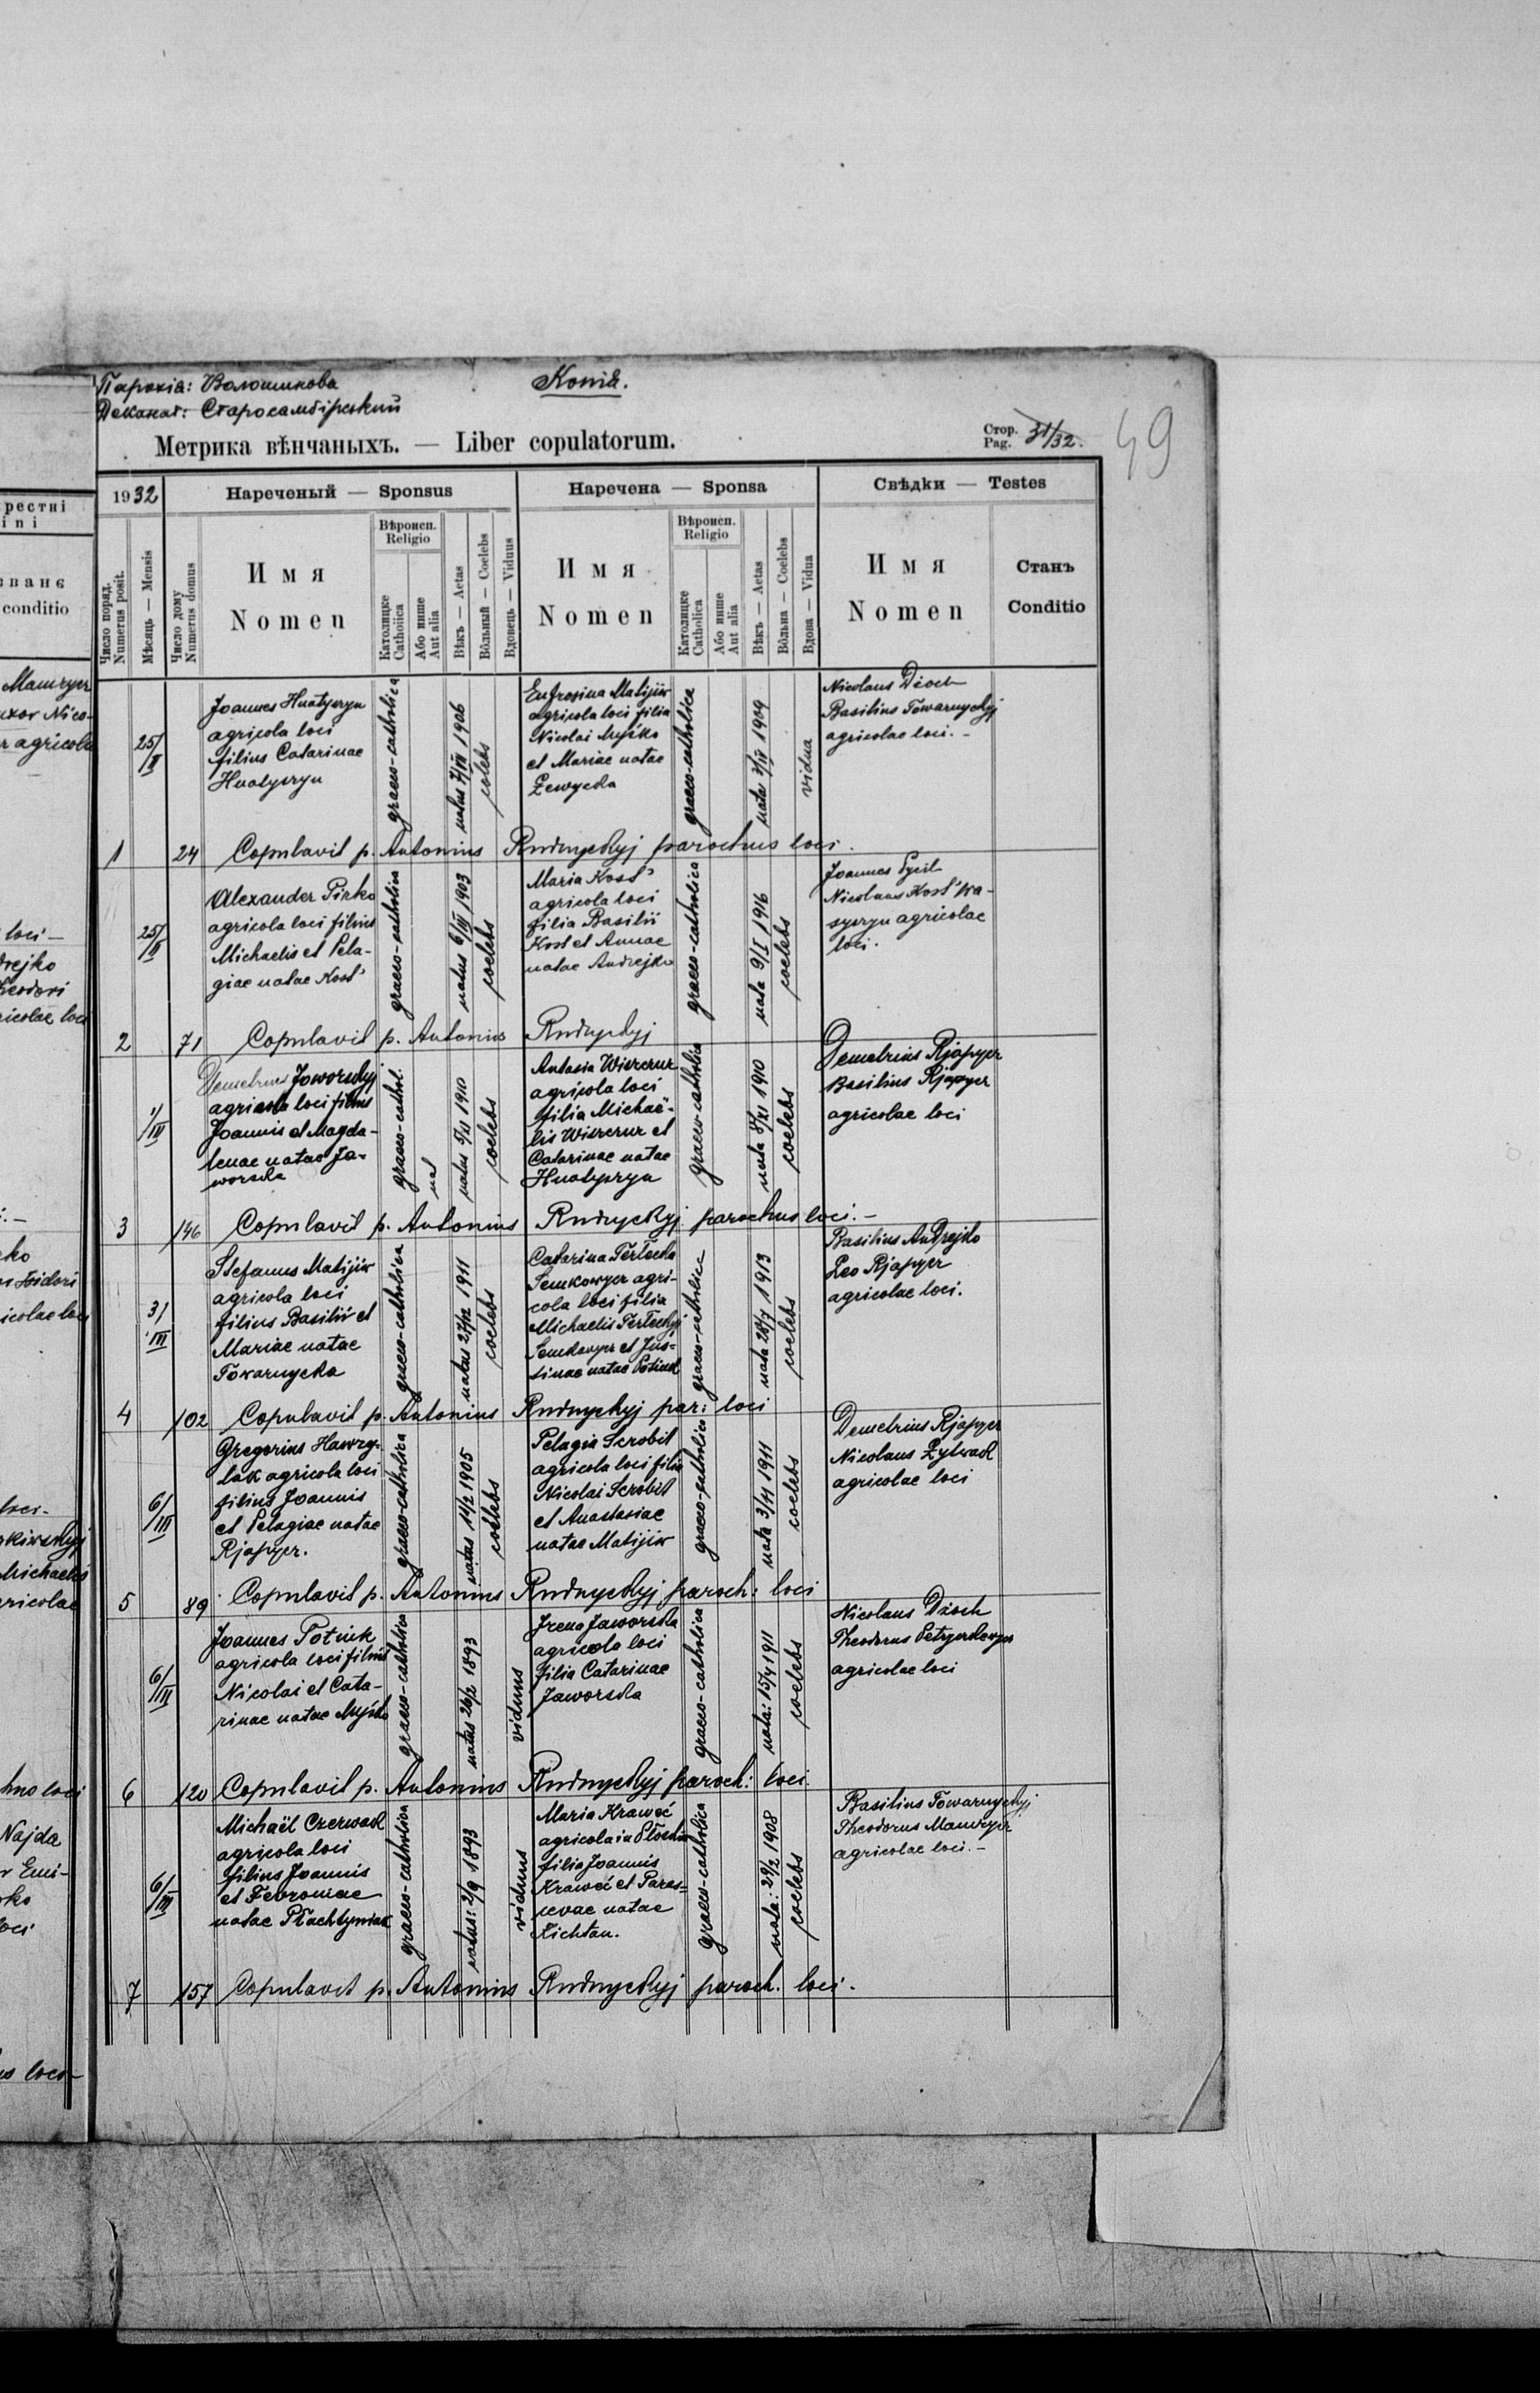 Парохія: Волошинова
Копія.
Деканат: Старосамбірський
Метрика вѣнчаныхъ. — Liber copulatorum.
Стор. Pag. 31/32.
49
1932
Нареченый — Sponsus
Наречена — Sponsa
Свѣдки — Testes
Число поряд.
Numerus posit.
Мѣсяць — Mensis
Число дому
Numerus domus
Имя
Nomen
Вѣроисп.
Religio
Католицке
Catholica
Або инше
Aut alia
Вѣкъ — Aetas
Вôльный — Coelebs
Вдовець — Viduus
Имя
Nomen
Вѣроисп.
Religio
Католицке
Catholica
Або инше
Aut alia
Вѣкъ — Aetas
Вôльна — Coelebs
Вдова — Vidua
Имя
Nomen
Станъ
Conditio
25/II
Joannes Hnatyszyn
agricola loci
filius Catarinae
Hnatyszyn
graeco-catholica
natus 7/IV 1906
coelebs
Eufrosina Matijiw
agricola loci filia
Nicolai Myśko
et Mariae natae
Lewycka
graeco-catholica
nata 7/IV 1909
vidua
Nicolaus Dżoch
Basilius Towarnyckyj
agricolae loci. –
1
24
Copulavit p. Antonius Rudnyckyj parochus loci.
25/II
Alexander Pirko
agricola loci filius
Michaelis et Pela-
giae natae Kost'
graeco-catholica
natus 6/III 1903
coelebs
Maria Kost'
agricola loci
filia Basilii
Kost et Annae
natae Andrejko
graeco-catholica
nata 9/I 1916
coelebs
Joannes
Nicolaus Kost' Wa-
syszyn agricolae
loci.
2
71
Copulavit p. Antonius Rudnyckyj
1/III
Demetrius Jaworskyj
agricola loci filius
Joannis et Magda-
lenae natae Ja-
worska
graeco-cathol.
nat
natus 5/XI 1910
coelebs
Antasia Wiszczur
agricola loci
filia Michaë-
lis Wiszczur et
Catarinae natae
Hnatyszyn
graeco-catholica
nata 8/XI 1910
coelebs
Demetrius Rjapyer
Basilius Rjapyer
agricolae loci
3
146
Copulavit p. Antonius Rudnyckyj parochus loci. –
3/III
Stefanus Matijiw
agricola loci
filius Basilii et
Mariae natae
Towarnycka
graeco-catholica
natus 27/12 1911
coelebs
Catarina Terlecka
Semkowyer agri-
cola loci filia
Michaelis Terleckyj
Semkowyer et Jus-
tinae natae Potiuk
graeco-catholica
nata 28/7 1913
coelebs
Basilius Andrejko
Leo Rjapyer
agricolae loci.
4
102
Copulavit p. Antonius Rudnyckyj par: loci
6/III
Gregorius Hawry-
lak agricola loci
filius Joannis
et Pelagiae natae
Rjapyer.
graeco-catholica
natus 14/2 1905
coelebs
Pelagia Skrobit
agricola loci filia
Nicolai Skrobit
et Anastasiae
natae Matijiw
graeco-catholica
nata 3/XI 1911
coelebs
Demetrius Rjapyer
Nicolaus Zylwack
agricolae loci
5
89
Copulavit p. Antonius Rudnyckyj paroch: loci
6/III
Joannes Potiuk
agricola loci filius
Nicolai et Cata-
rinae natae Myśko
graeco-catholica
natus 26/2 1893
viduus
Irena Jaworska
agricola loci
filia Catarinae
Jaworska
graeco-catholica
nata: 15/4 1911
coelebs
Nicolaus Dżoch
Theodorus
agricolae loci
6
120
Copulavit p. Antonius Rudnyckyj paroch: loci
6/III
Michaël Czerwak
agricola loci
filius Joannis
et Fevroniae
natae Płachtyniak
graeco-catholica
natus: 2/9 1893
viduus
Maria Kraweć
agricola in Płoskie
filia Joannis
Kraweć et Paras-
cevae natae
Kichtan.
graeco-catholica
nata: 29/2 1908
coelebs
Basilius Towarnyckyj
Theodorus Mamryer
agricolae loci. –
7
157
Copulavit p. Antonius Rudnyckyj paroch. loci.